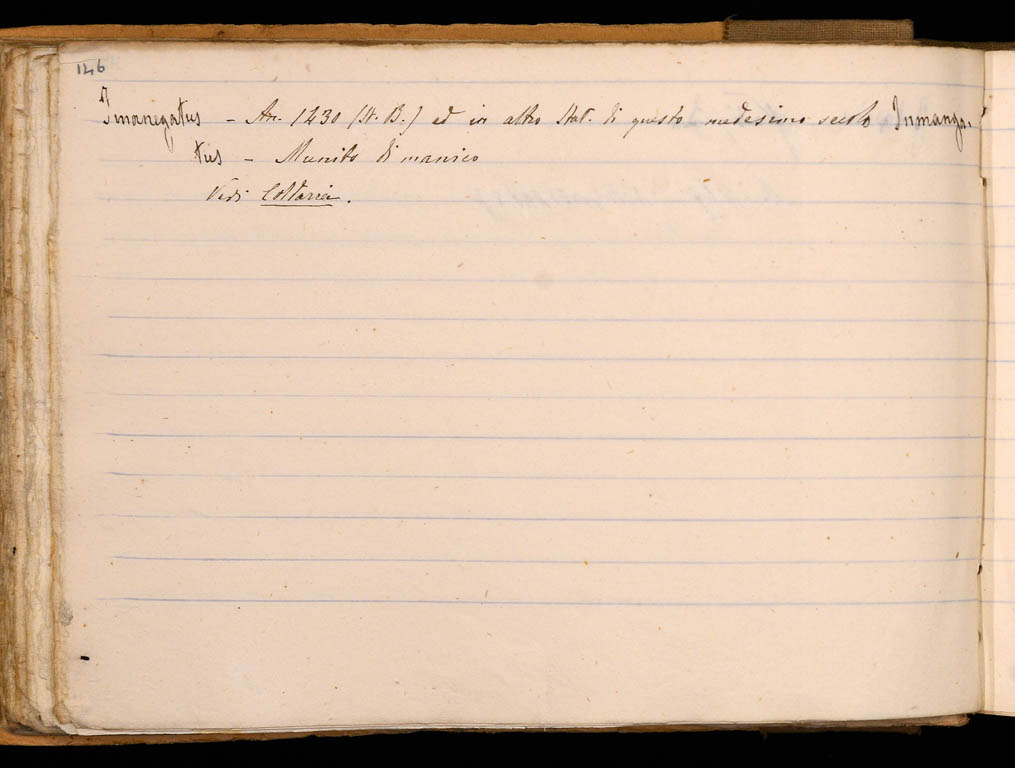 146
Imanegatus – An. 1430 (St. B.) ed in altro Stat. di questo medesimo secolo Inmanga-
tus – Munito di manico
Vedi Coltaria.